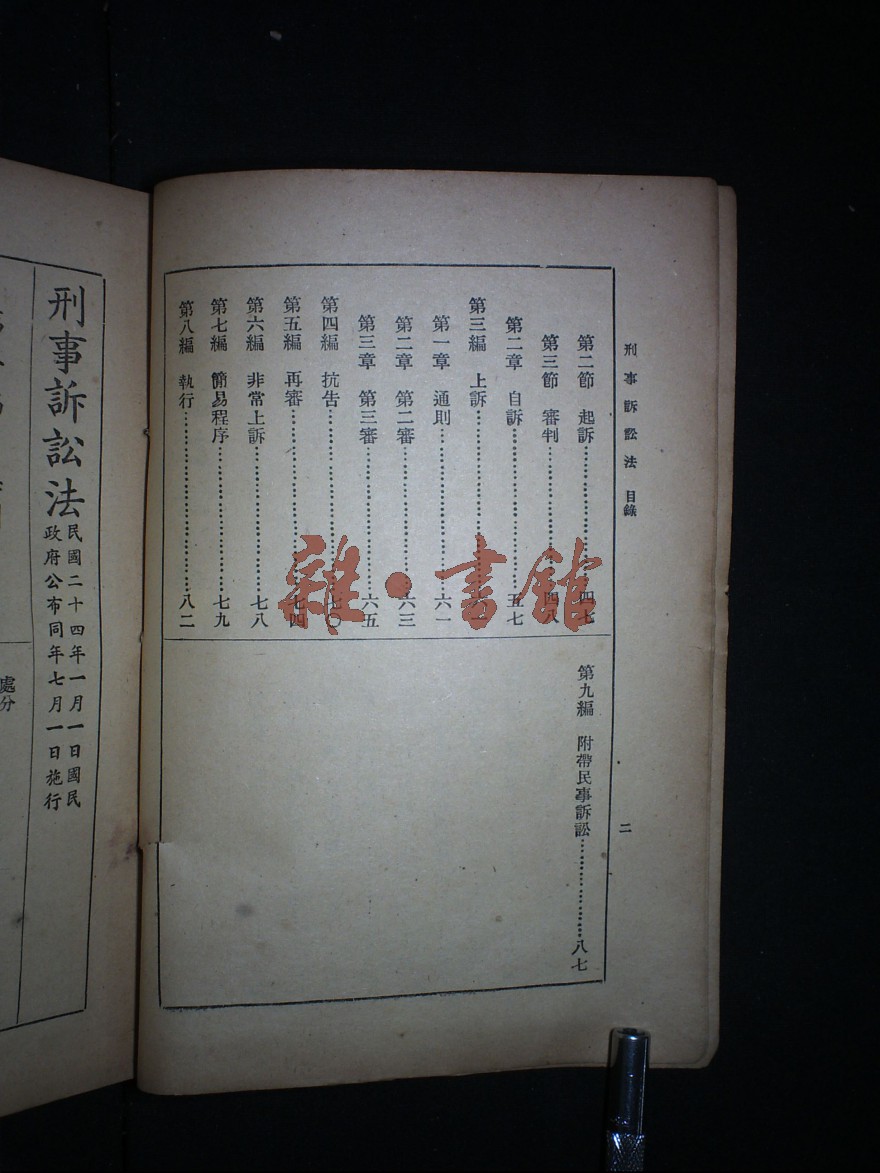 刑事訴訟法 目錄
二
第二節 起訴……四七
第三節 審判……四八
第二章 自訴……五七
第三編 上訴……六一
第一章 通則……六一
第二章 第二審……六三
第三章 第三審……六五
第四編 抗告……七〇
第五編 再審……七四
第六編 非常上訴……七八
第七編 簡易程序……七九
第八編 執行……八二
第九編 附帶民事訴訟……八七
刑事訴訟法
民國二十四年一月一日國民
政府公布同年七月一日施行
處分
雜·書館